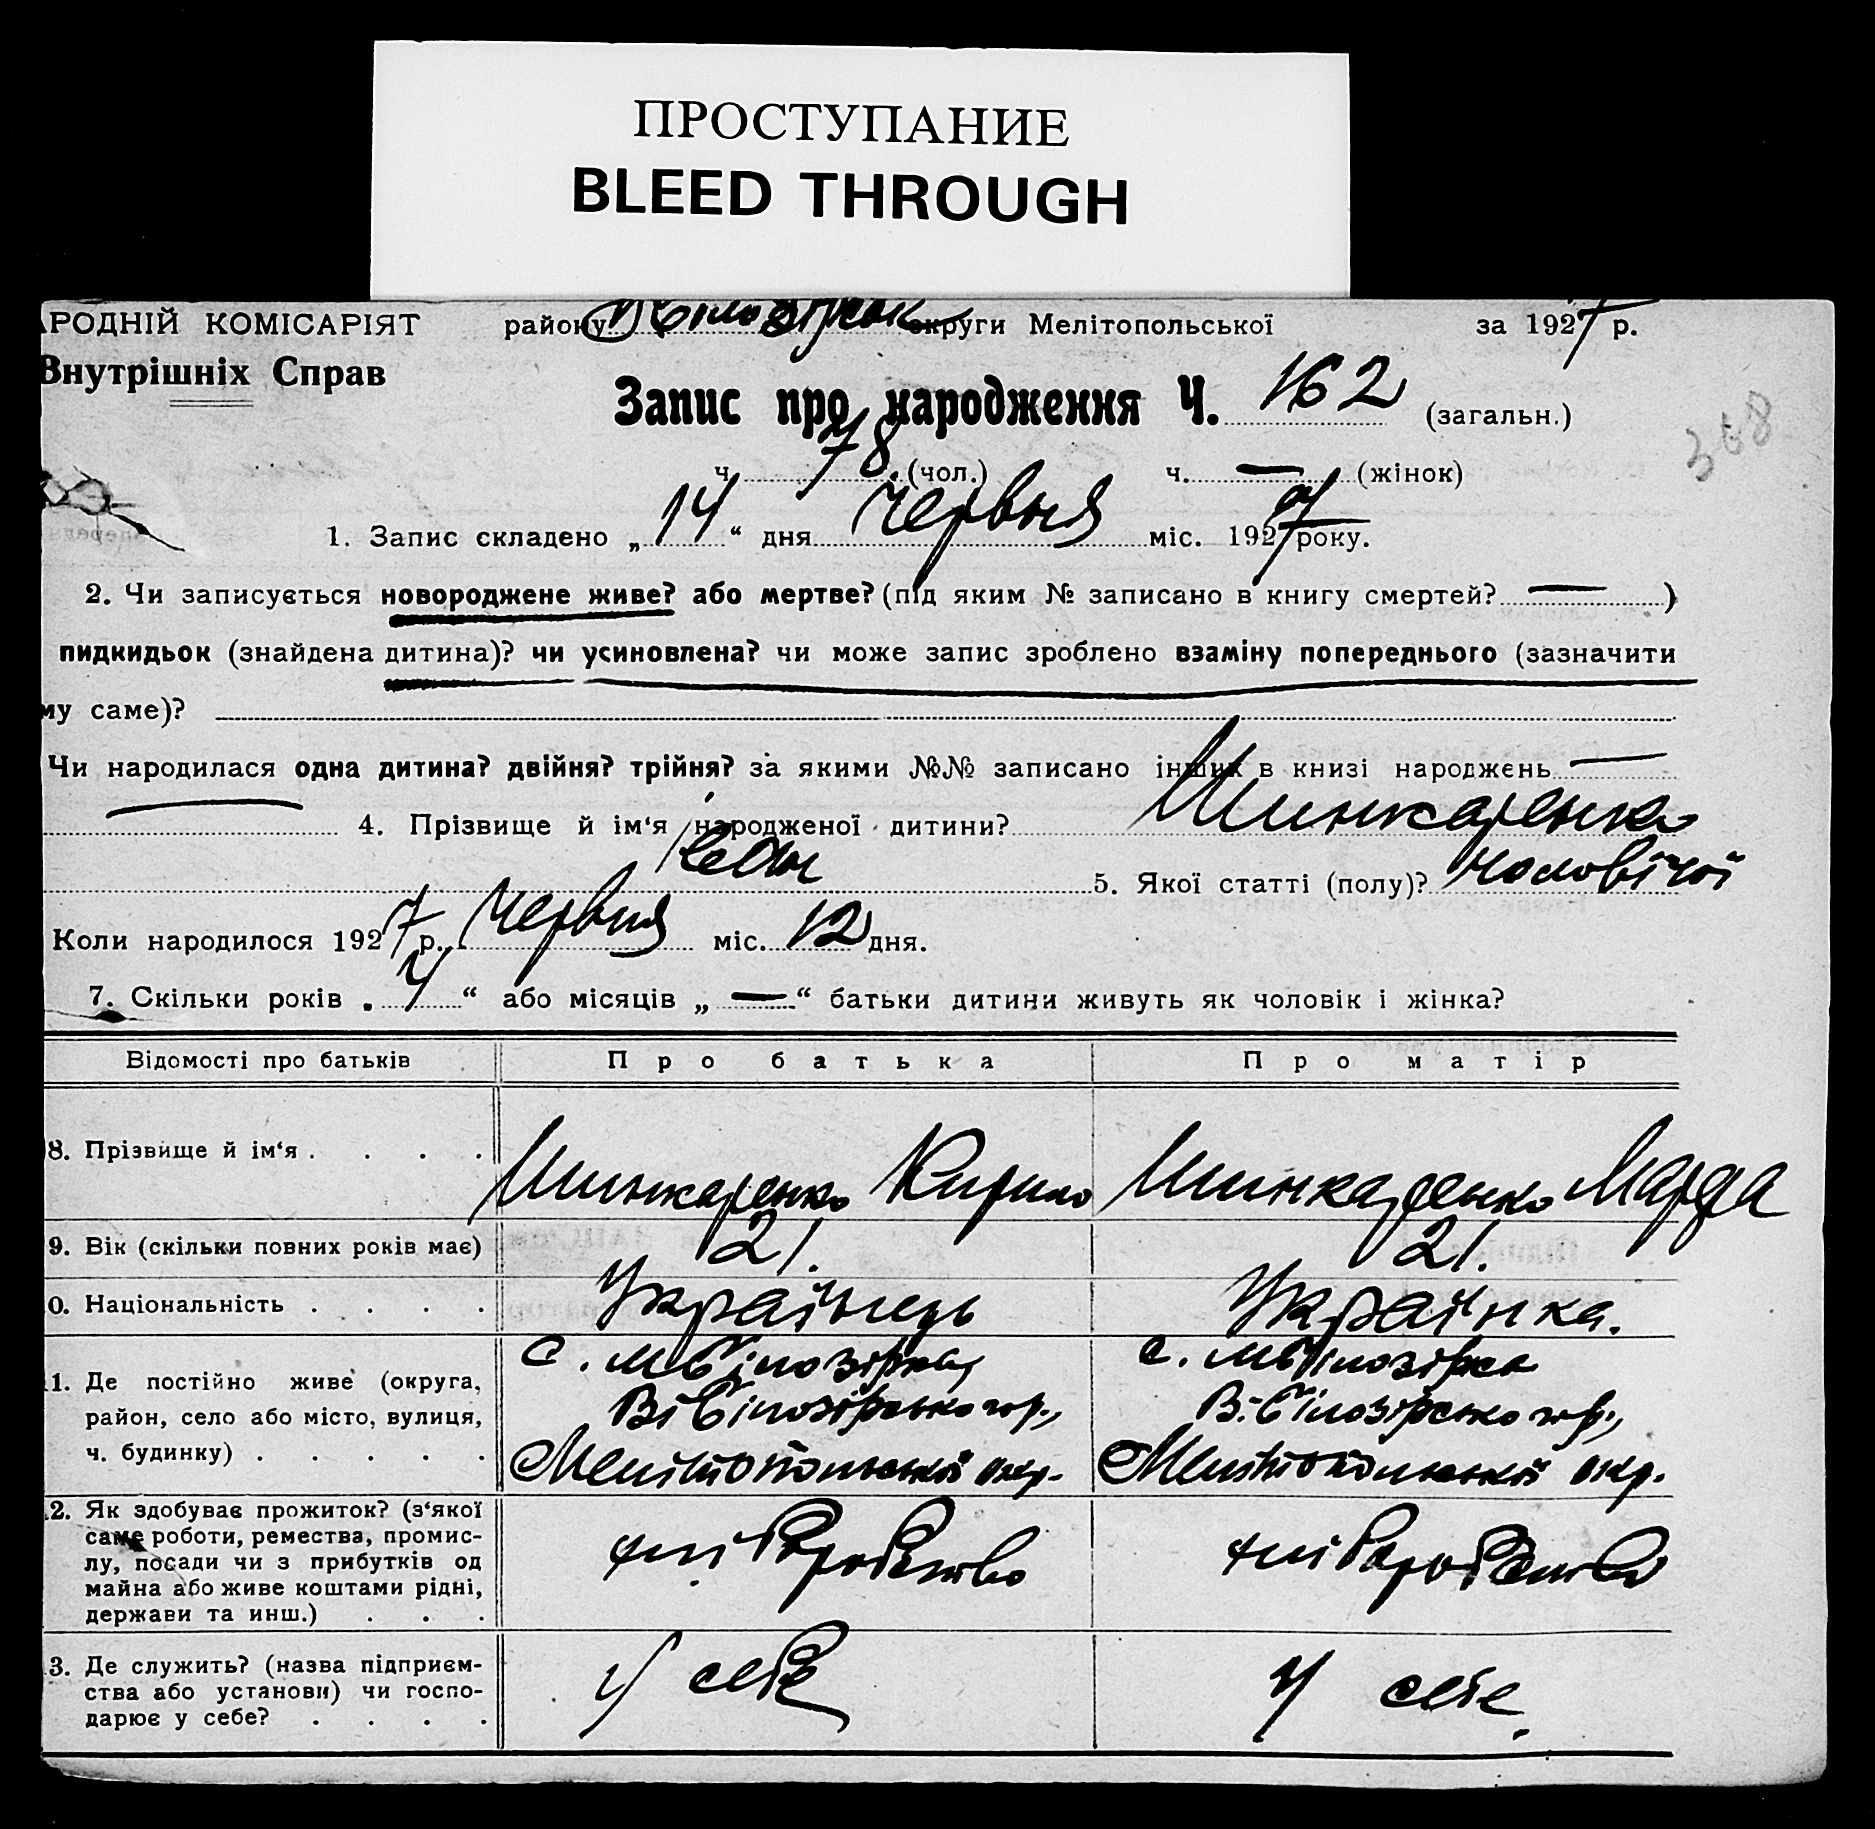 ПРОСТУПАНИЕ
BLEED THROUGH
АРОДНІЙ КОМІСАРІЯТ району округи Мелітопольської за 1927 р.
Внутрішніх Справ
Запис про народження Ч. 162 (загальн.)
368
ч. 78 (чол.) ч. — (жінок)
1. Запис складено „14“ дня Червня міс. 1927 року.
2. Чи записується новороджене живе? або мертве? (під яким № записано в книгу смертей? — )
пидкидьок (знайдена дитина)? чи усиновлена? чи може запис зроблено взаміну попереднього (зазначити
му саме)?
Чи народилася одна дитина? двійня? трійня? за якими №№ записано інших в книзі народжень —
— 4. Прізвище й ім‘я народженої дитини? Шинкаренко
5. Якої статті (полу)? чоловічої
Коли народилося 1927 р. Червня міс. 12 дня.
7. Скільки років „ “ або місяців „ — “ батьки дитини живуть як чоловік і жінка?
Відомості про батьків Про батька Про матір
8. Прізвище й ім‘я . . . . Шинкаренко Кирило Шинкаренко Марфа
9. Вік (скільки повних років має) 21. 21.
0. Національність . . . . Українець Українка.
1. Де постійно живе (округа, с. мБілозірка, с. мБілозірка
район, село або місто, вулиця, Ві Білозірського р., В. Білозірського р.,
ч. будинку) . . . . . Мелітопольської окр. Мелітопольської окр.
2. Як здобуває прожиток? (з‘якої
саме роботи, ремества, промис-
лу, посади чи з прибутків од хліборобство хліборобство
майна або живе коштами рідні,
держави та инш.) . . .
3. Де служить? (назва підприєм-
ства або установи) чи госпо- у себе у себе
дарює у себе? . . . .